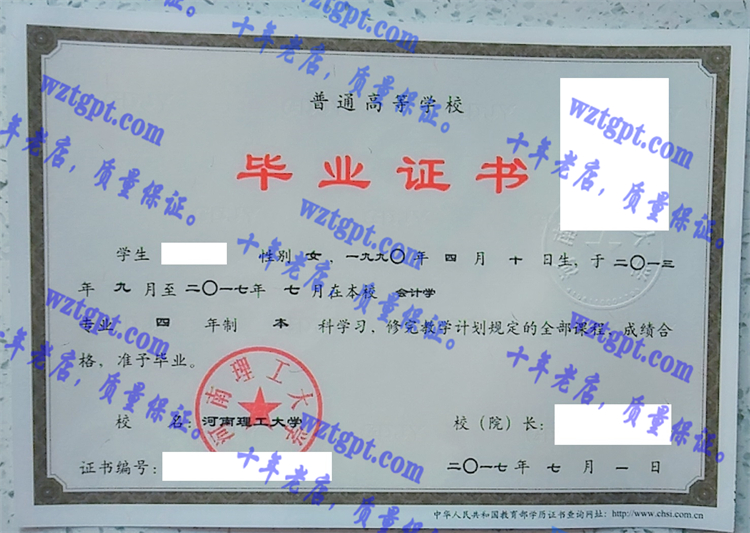 普通高等学校
毕业证书
学生 性别 女、一九九〇年 四 月 十 日生，于 二〇一三
年 九 月至 二〇一七年 七 月在本校 会计学
专业 四 年制 本 科学习，修完教学计划规定的全部课程，成绩合
格，准予毕业。
校 名：河南理工大学 校（院）长：
证书编号： 二〇一七年 七 月 一 日
中华人民共和国教育部学历证书查询网址：http://www.chsi.com.cn
河南理工大学
wztgpt.com
十年老店，质量保证。
wztgpt.com
十年老店，质量保证。
wztgpt.com
十年老店，质量保证。
wztgpt.com
十年老店，质量保证。
wztgpt.com
十年老店，质量保证。
wztgpt.com
十年老店，质量保证。
wztgpt.com
十年老店，质量保证。
wztgpt.com
十年老店，质量保证。
wztgpt.com
十年老店，质量保证。